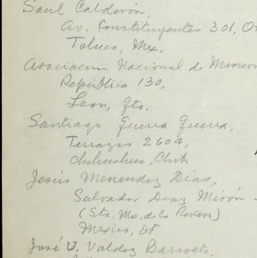 Saul Calderón,
Av. Constituyentes 301, O
Toluca, Mex.
Asociacion Nacional de
República 130,
Leon, Gto.
Santiago Guerra Guerra,
Terrazas 2604,
Chihuahua, Chih
Jesús Menendez Dias,
Salvador Diaz Mirón
(Sta. Ma. de la Rivera)
Mexico, DF
José U. Valdez Barroeta,